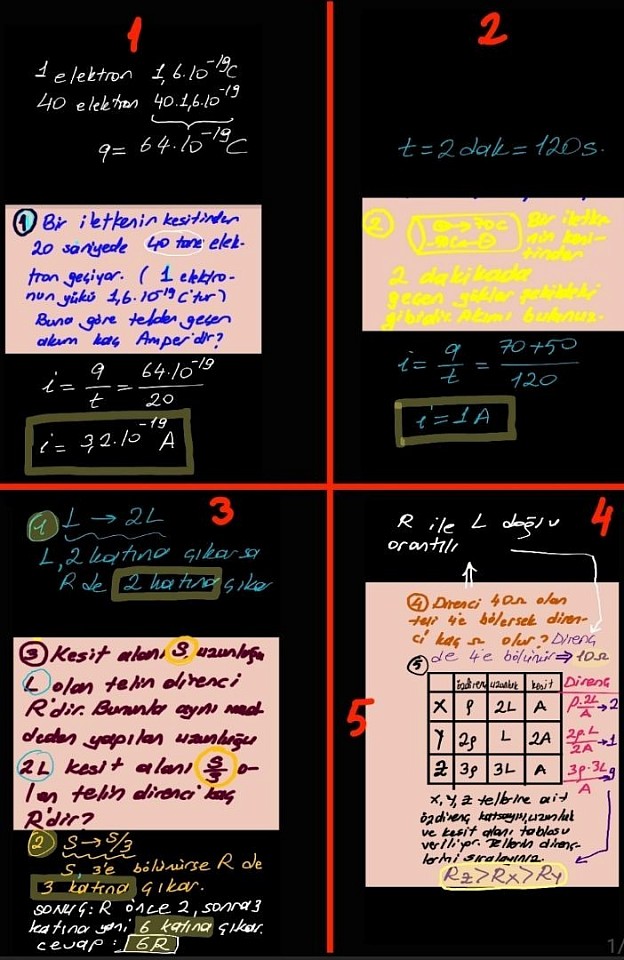 1
1 elektron 1,6.10⁻¹⁹C
40 elektron 40.1,6.10⁻¹⁹
q= 64.10⁻¹⁹C
① Bir iletkenin kesitinden
20 saniyede 40 tane elek-
tron geçiyor. ( 1 elektro-
nun yükü 1,6.10⁻¹⁹ C'tur)
Buna göre telden geçen
akım kaç Amperdir?
i = q/t = 64.10⁻¹⁹/20
i = 3,2.10⁻¹⁹ A
2
t = 2 dak = 120 s.
② ⊕→70C Bir iletke-
50C←⊖ nin kesi-
tinden
2 dakikada
geçen yükler şekildeki
gibidir. Akımı bulunuz.
i = q/t = 70+50/120
i = 1 A
3
1 L → 2L
L, 2 katına çıkarsa
R de 2 katına çıkar
③ Kesit alanı S, uzunluğu
L olan telin direnci
R'dir. Bununla aynı mad-
deden yapılan uzunluğu
2L kesit alanı S/3 o-
lan telin direnci kaç
R'dir?
2 S → S/3
S, 3'e bölünürse R de
3 katına çıkar.
SONUÇ: R önce 2, sonra 3
katına yani 6 katına çıkar.
cevap : 6R
4
R ile L doğru
orantılı
④ Direnci 40Ω olan
teli 4'e bölersek diren-
ci kaç Ω olur? Direnç
de 4'e bölünür ⇒ 10Ω
5
⑤ özdirenç uzunluk kesit Direnç
X ρ 2L A ρ.2L/A → 2
Y 2ρ L 2A 2ρ.L/2A → 1
Z 3ρ 3L A 3ρ.3L/A → 9
X, Y, Z tellerine ait
özdirenç katsayısı, uzunluk
ve kesit alanı tablosu
veriliyor. Tellerin direnç-
lerini sıralayınız.
Rz > Rx > Ry
1/